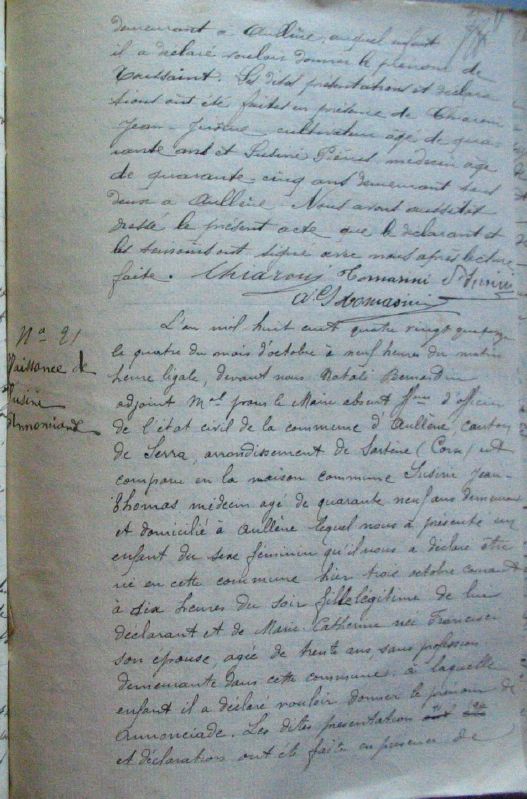 demeurant à Aullène, auquel enfant
il a déclaré vouloir donner le prénom de
Toussaint. Les dites présentations et déclara
tions ont été faites en présence de Chiaroni
Jean cultivateur âgé de qua
rante ans et Susini médecin âgé
de quarante cinq ans demeurant tous
deux à Aullène. Nous avons aussitôt
dressé le présent acte que le déclarant et
les témoins ont signé avec nous après lecture
faite. Chiaroni Tomasini Susini
Tomasini
No 21
Naissance de
Susini
Annonciade
L'an mil huit cent quatre vingt quatorze
le quatre du mois d'octobre à neuf heures du matin
heure légale, devant nous Natali Bernardin
adjoint Mal pour le Maire absent ffons d'officier
de l'état civil de la commune d'Aullène, canton
de Serra, arrondissement de Sartène (Corse) est
comparu en la maison commune Susini Jean
Thomas médecin agé de quarante neuf ans demeurant
et domicilié à Aullène lequel nous à présenté un
enfant du sexe féminin qu'il nous a déclaré être
né en cette commune hier trois octobre courant
à dix heures du soir fille légitime de lui
déclarant et de Marie Catherine née
son epouse, agée de trente ans, sans profession
demeurante dans cette commune, à laquelle
enfant il a déclaré vouloir donner le prénom de
Annonciade. Les dites présentation
et déclaration ont été faites en présence de